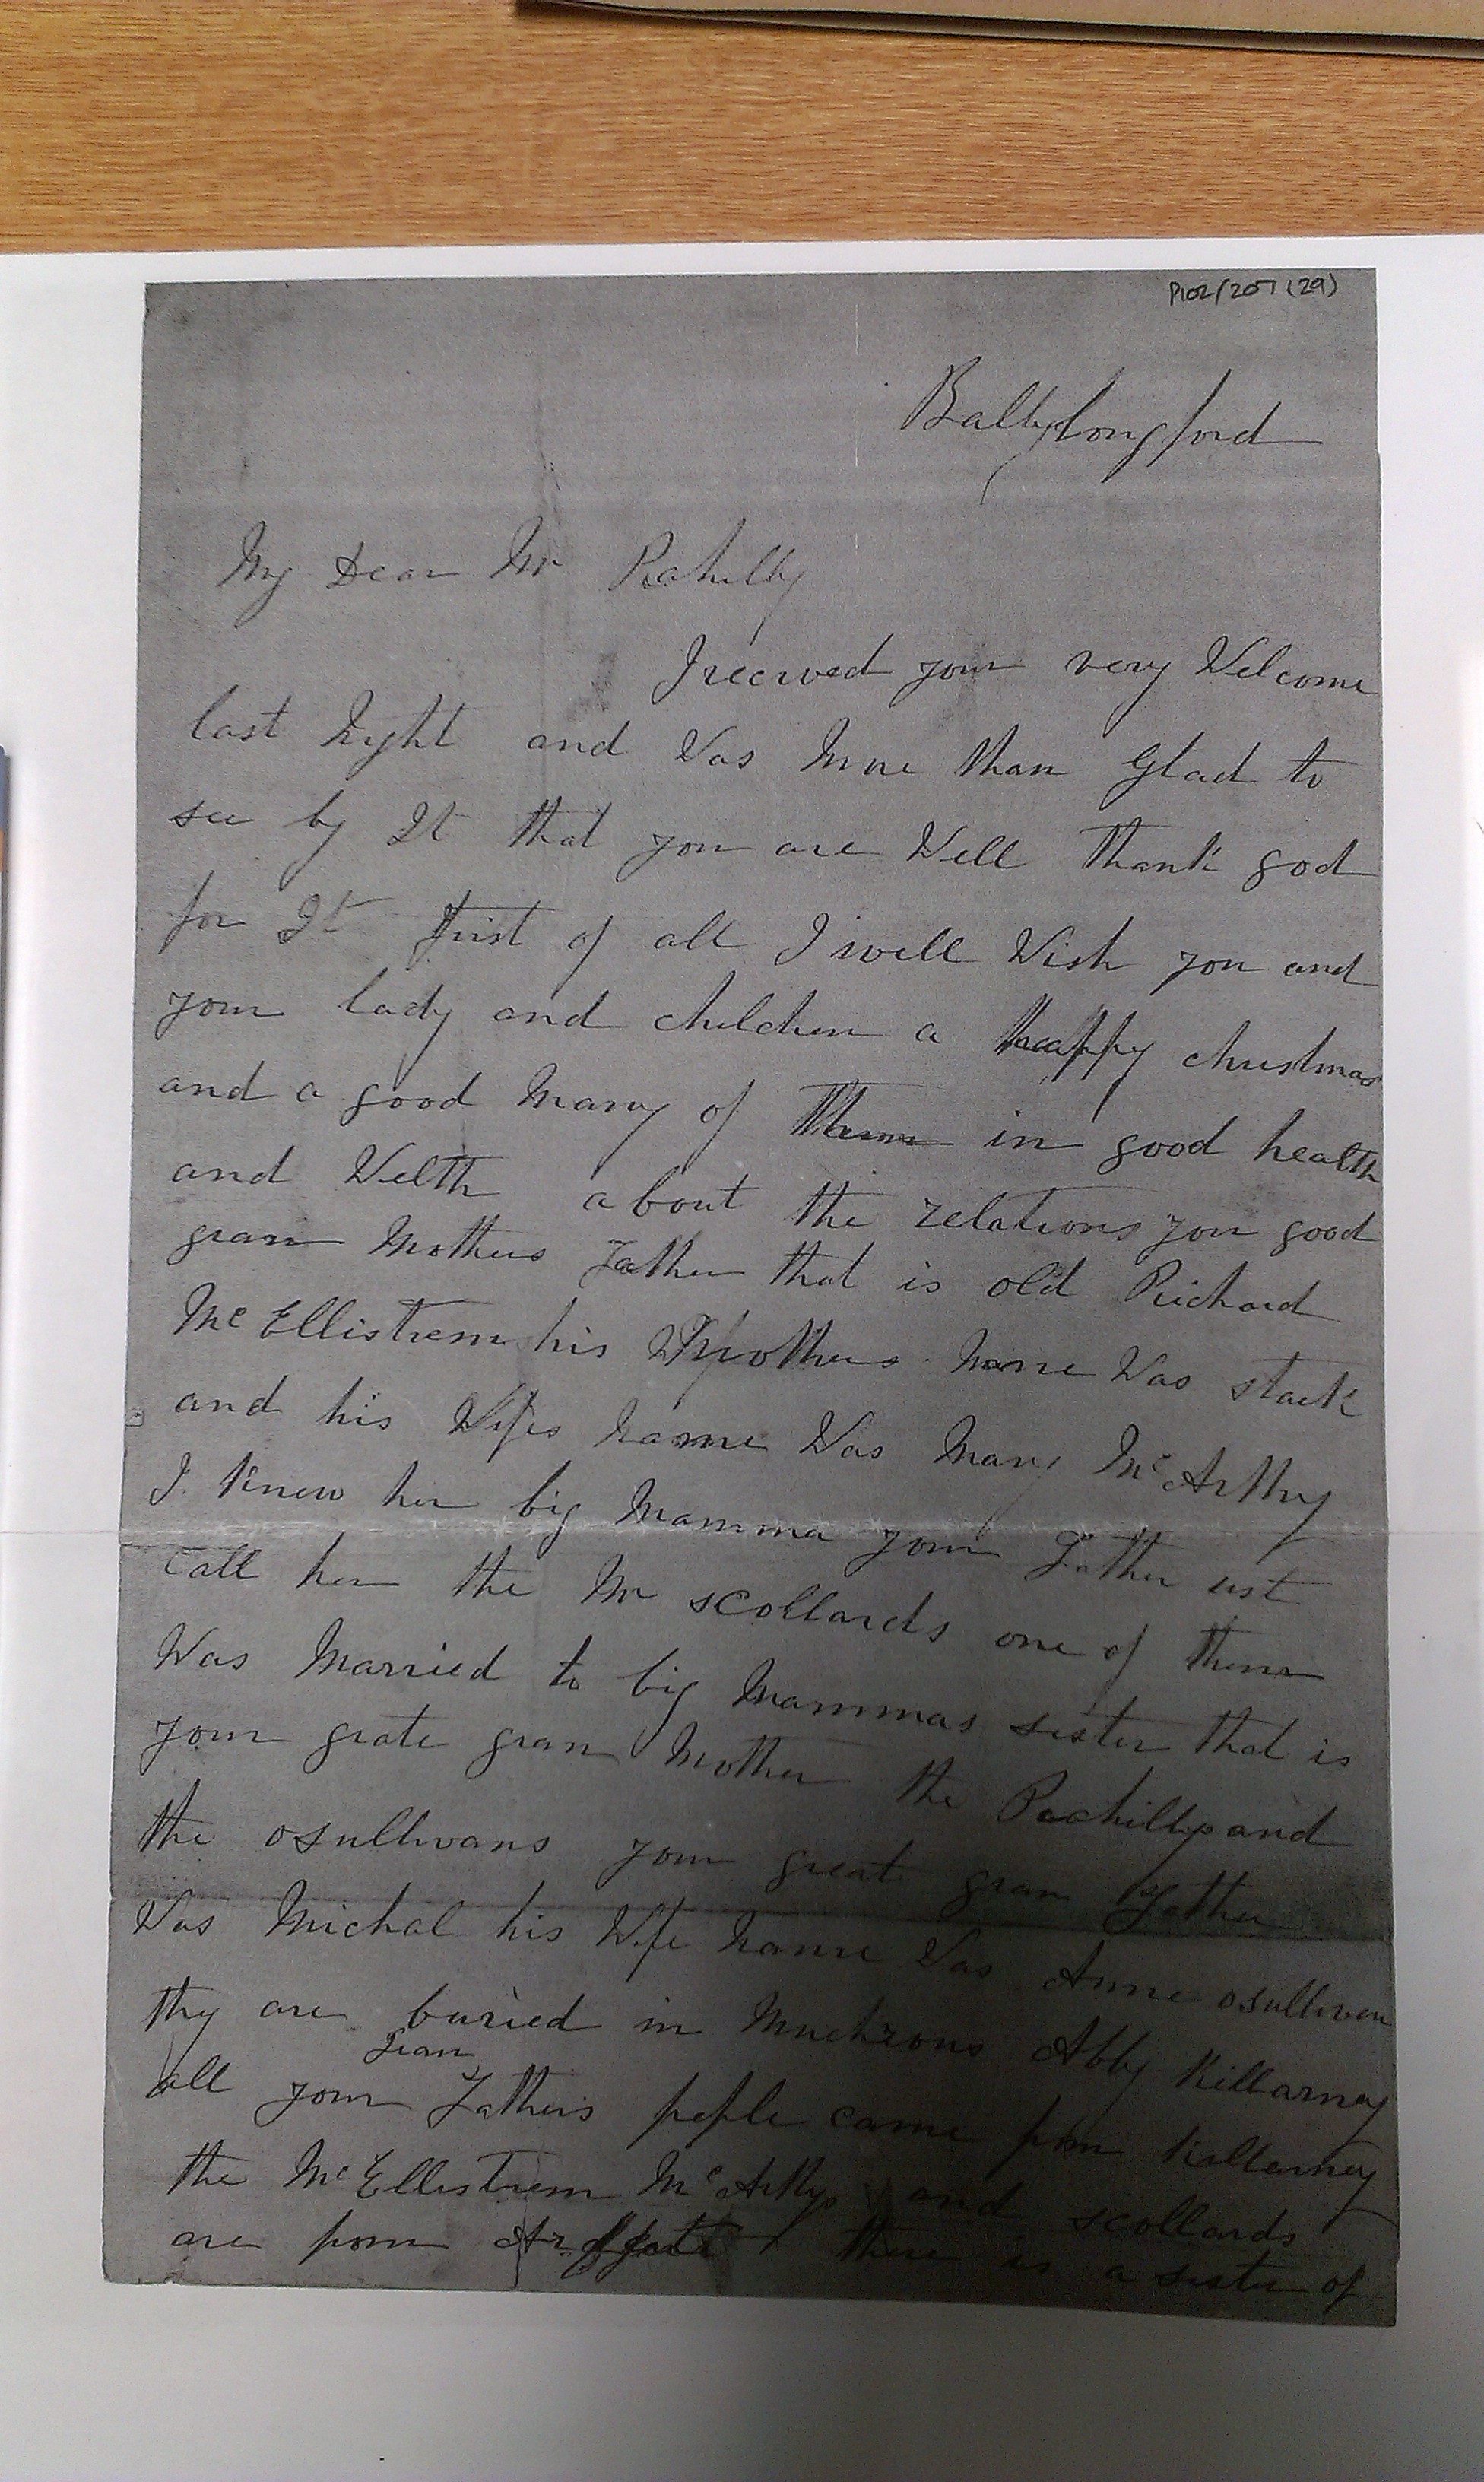 P102/207 (29)
Ballylongford
My Dear Mr Rahilly
I recrved your very Welcome
last Night and Was More than Glad to
see by It that you are Well thank god
for It first of all I will Wish you and
your lady and children a happy christmas
and a good Many of them in good health
and Welth about the relations your good
gran Mothers Father that is old Richard
Mc Ellistrem his Mothers Name Was stack
and his Wifes Name Was Mary Mc Arthy
I Knew her big Mamma your Father ust
call her the Mr scollards one of them
Was Married to big Mammas sister that is
your grate gran Mother the Rachillys and
the osullivans your great gran Father
Was Michal his Wife Name Was Anne osullivan
thy are buried in Muckrous Abby Killarney
Gran
all your Fathers peple came from Killarney
the Mc Ellistrem Mc Arthys and scollards
are from there is a sister of